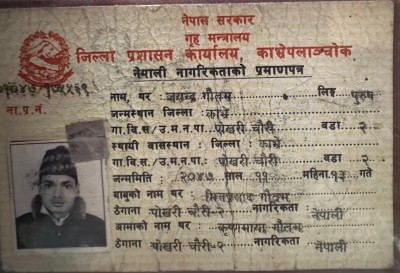 नेपाल सरकार
गृह मन्त्रालय
जिल्ला प्रशासन कार्यालय, काभ्रेपलाञ्चोक
नेपाली नागरिकताको प्रमाणपत्र
ना.प्र.नं.
नाम, थर : गौतम लिङ्ग पुरुष
जन्मस्थान जिल्ला : काभ्रे
गा.बि.स/उ.म.न.पा. : पोखरी चौंरी वडा २
स्थायी वासस्थान : जिल्ला : काभ्रे
गा.बि.स/उ.म.न.पा. : पोखरी चौंरी वडा २
जन्ममिति : २०४७ साल ११ महिना १३ गते
बाबुको नाम थर : गौतम
ठेगाना पोखरी चौंरी-२ नागरिकता नेपाली
आमाको नाम थर : कृष्णमाया गौतम
ठेगाना पोखरी चौंरी-२ नागरिकता नेपाली